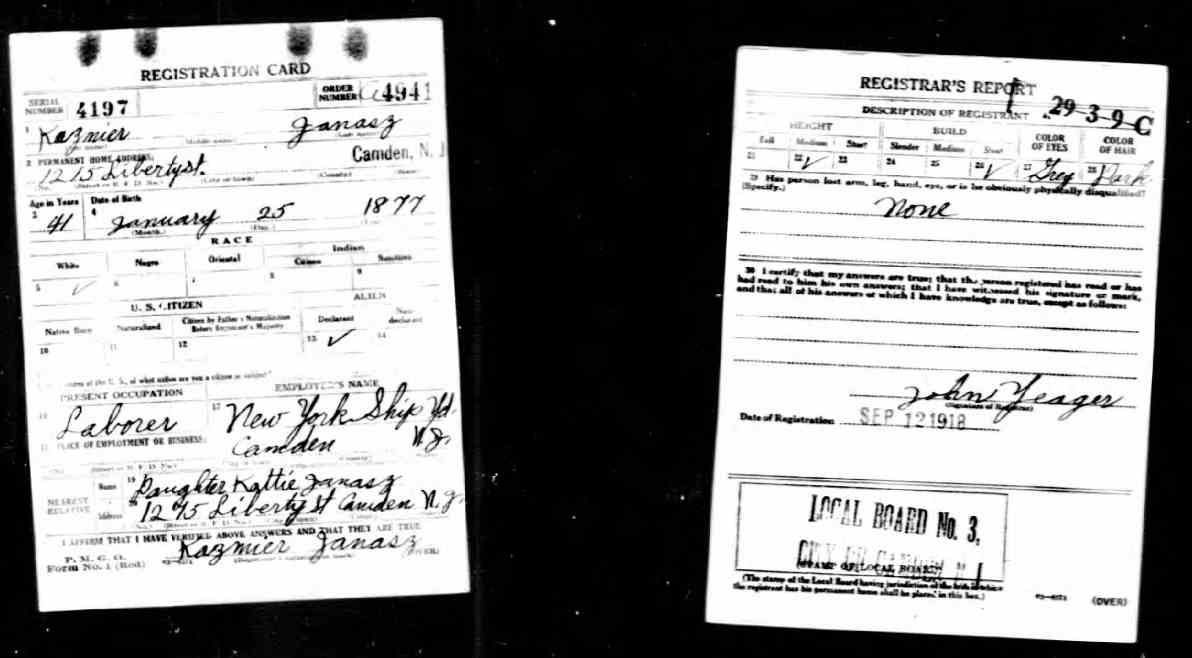 REGISTRATION CARD
SERIAL NUMBER 4197
ORDER NUMBER a4941
1 Kazmier Janasz
2 PERMANENT HOME ADDRESS:
1215 Liberty st. Camden, N. J
(No.) (Street or R. F. D. No.) (City or town) (County) (State)
Age in Years Date of Birth
3 41 4 January 25 1877
(Month.) (Day.)
RACE
White Negro Oriental Indian
Citizen
5 ✓ 6 7 8 9
U. S. CITIZEN ALIEN
Native Born Naturalized Citizen by Father's Naturalization Before Registrant's Majority Declarant Non-declarant
10 11 12 13 ✓ 14
of the U. S., of what nation are you a citizen or subject?
PRESENT OCCUPATION EMPLOYER'S NAME
Laborer 17 New York Ship Yd.
PLACE OF EMPLOYMENT OR BUSINESS:
Camden N.J.
NEAREST RELATIVE
Name 19 Daughter Kattie Janasz
Address 1215 Liberty St Camden N.J.
I AFFIRM THAT I HAVE VERIFIED ABOVE ANSWERS AND THAT THEY ARE TRUE
P. M. G. O.
Form No. 1 (Red) Kazmier Janasz (OVER)
REGISTRAR'S REPORT
29-3-9-C
DESCRIPTION OF REGISTRANT
HEIGHT BUILD COLOR OF EYES COLOR OF HAIR
Tall Medium Short Slender Medium Stout
21 22 ✓ 23 24 25 26 ✓ 27 Grey 28 Dark
29 Has person lost arm, leg, hand, eye, or is he obviously physically disqualified?
(Specify.)
None
30 I certify that my answers are true; that the person registered has read or has
had read to him his own answers; that I have witnessed his signature or mark,
and that all of his answers of which I have knowledge are true, except as follows:
John Yeager
(Signature of Registrar)
Date of Registration SEP 12 1918
LOCAL BOARD No. 3,
CITY OF CAMDEN N J
STAMP OF LOCAL BOARD
(The stamp of the Local Board having jurisdiction of the area in which
the registrant has his permanent home shall be placed in this box.)
(OVER)